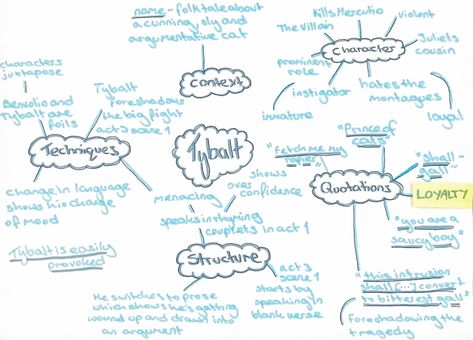 name - folktale about
a cunning, sly and
argumentative cat
Context
Kills Mercutio
The Villain
violent
Juliet's
cousin
Character
prominent
role
instigator
immature
hates the
montagues
loyal
characters
juxtapose
Benvolio and
Tybalt are
foils
Tybalt
foreshadows
the big fight
act 3 scene 1
Techniques
change in language
shows his change
of mood
Tybalt is easily
provoked
Tybalt
menacing
shows
over
confidence
"Fetch me my
rapier"
"Prince of
cats"
Quotations
"shall-
gall"
LOYALTY
"you are a
saucy boy"
"this intrusion
shall (...) convert
to bitterest gall"
foreshadowing the
tragedy
speaks in rhyming
couplets in act 1
Structure
He switches to prose
which shows he's getting
wound up and drawn into
an argument
act 3
scene 1
starts by
speaking in
blank verse